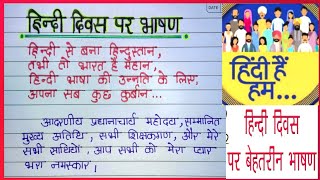 हिन्दी दिवस पर भाषण
DATE
हिन्दी से बना हिन्दुस्तान,
तभी तो भारत है महान,
हिन्दी भाषा की उन्नति के लिए,
अपना सब कुछ कुर्बान...
आदरणीय प्रधानाचार्य महोदय, सम्मानित
मुख्य अतिथि, सभी शिक्षकगण, और मेरे
सभी साथियों, आप सभी को मेरा प्यार
भरा नमस्कार।
हिंदी हैं
हम...
हिन्दी दिवस
पर बेहतरीन भाषण